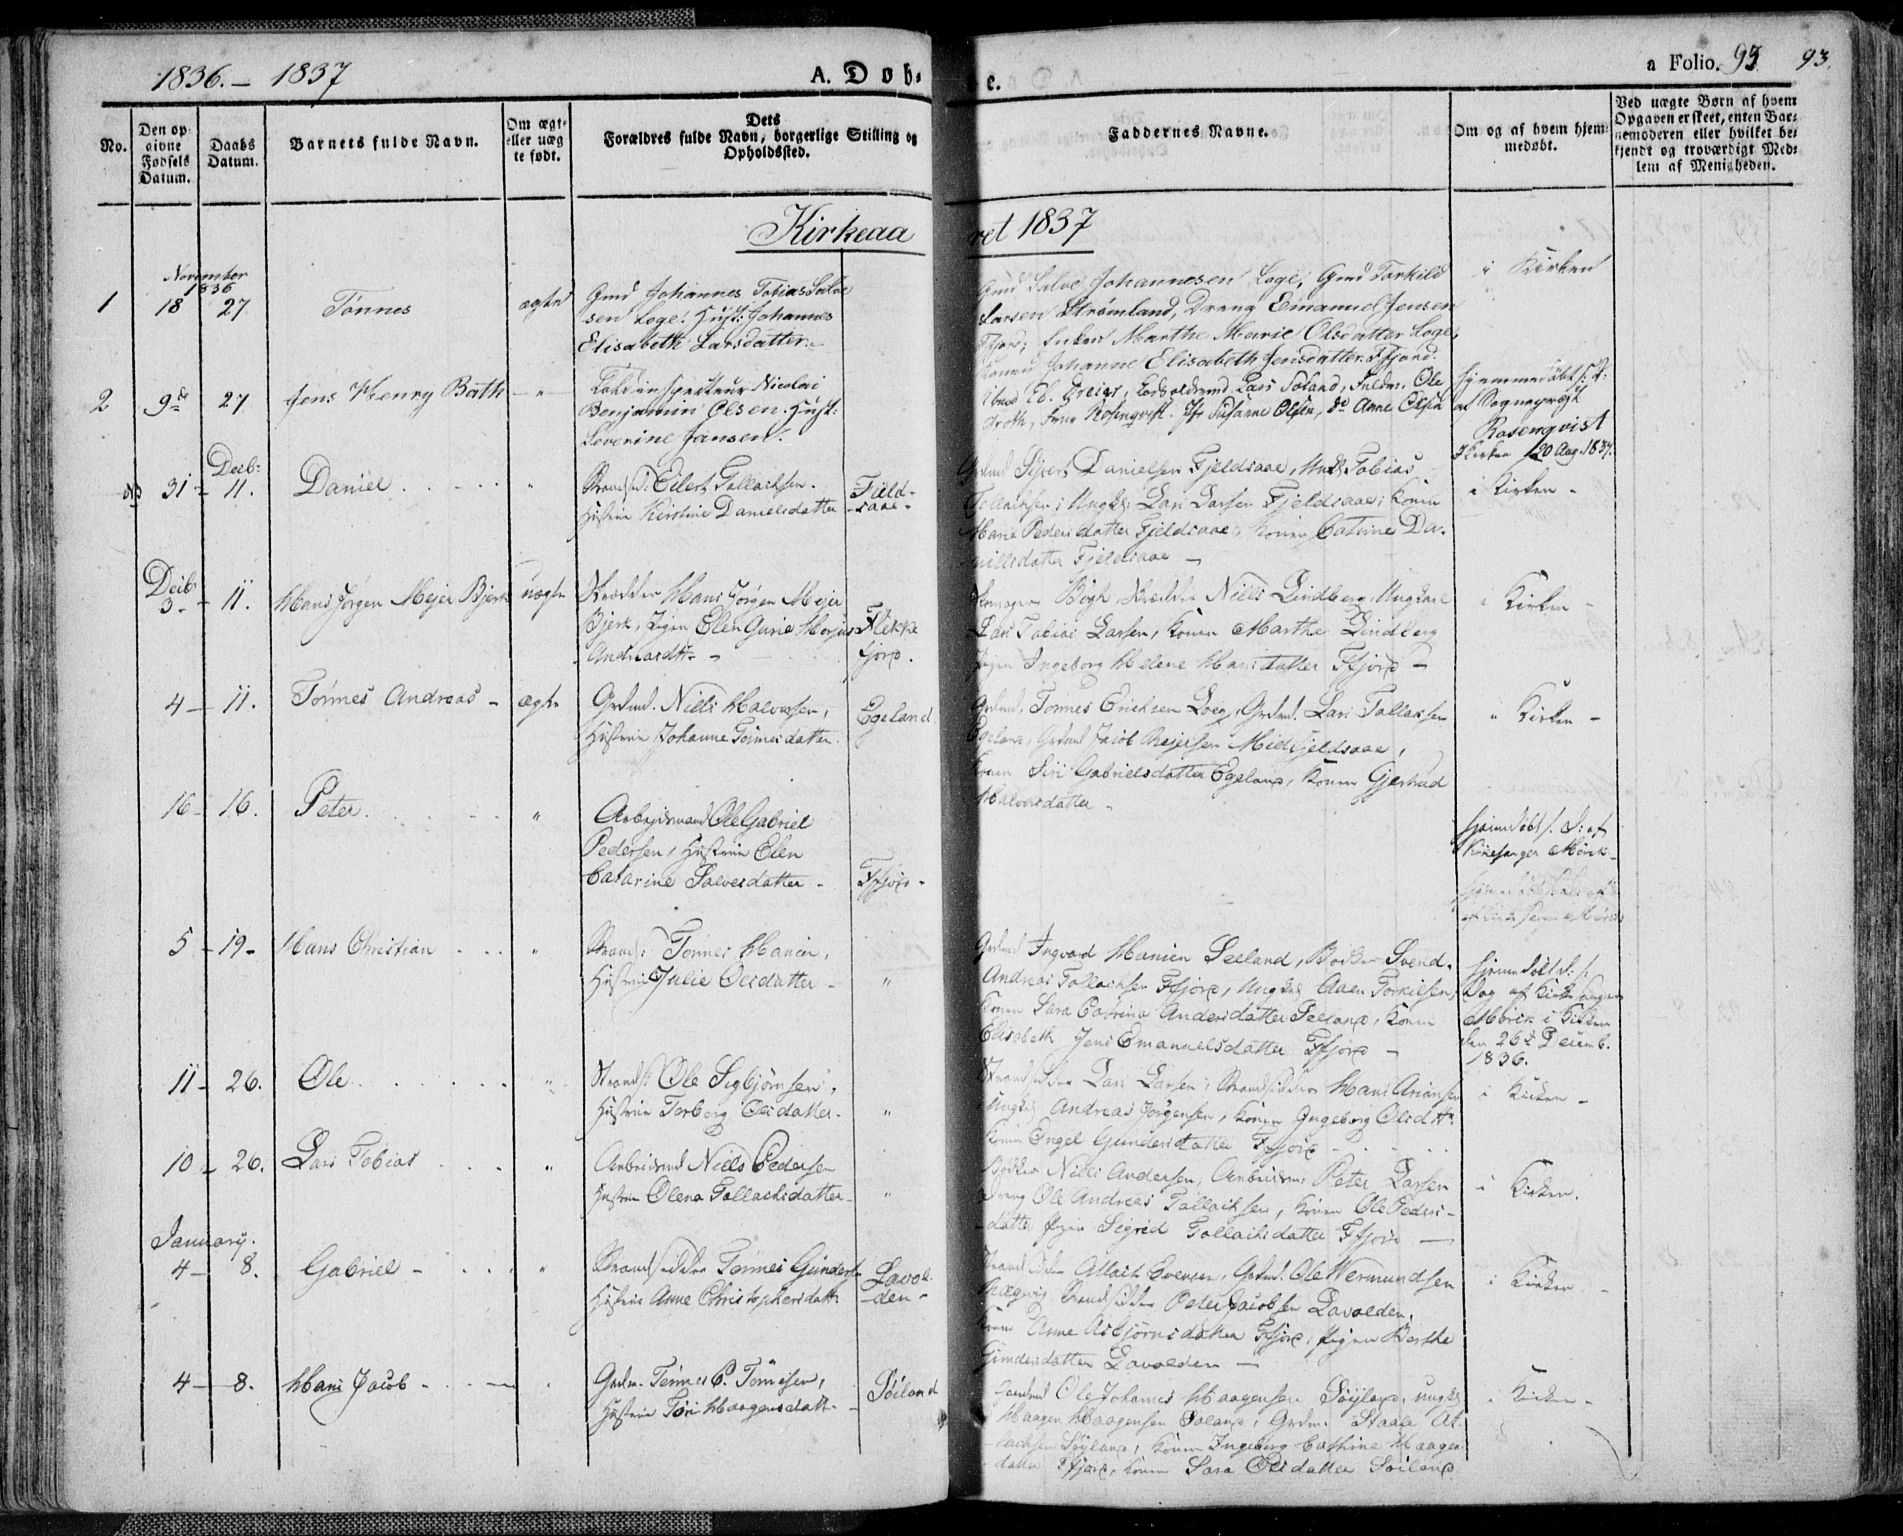 1836. - 1837
A. Døb-
e.
a Folio. 93
93.
No.
Den opgivne Fødsels Datum.
Daabs Datum.
Barnets fulde Navn.
Om ægte eller uægte født.
Dets Forældres fulde Navn, borgerlige Stilling og Opholdssted.
Faddernes Navne.
Om og af hvem hjemmedøbt.
Ved uægte Børn af hvem Opgaven er skeet, enten Barnemoderen eller hvilket bekjendt og troværdigt Medlem af Menigheden.
Kirkeaa
ret 1837
November
1836
1 18 27 Tønnes ægte Gmd Johannes Tobias Salve
sen Loge. Hust: Johannes
Elisabeth Larsdatter.
Gmd Salve Johannesen Loge, Gmd Torkild
Larsen Strømland, Dreng Emanuel Jensen
Ffjord; Enken Marthe Marie Olsdatter Loge,
Konen Johanne Elisabeth Jensdatter Ffjord.
i Kirken
2 9de 27 Jens Henry Bath - " - Toldinspecteur Nicolai
Benjamin Olsen. Hust:
Severine Jansen.
Eb. Greier, Lars Søland, Fuldm. Ole
Groth, Frue Rosenqvist. Jfr Susanne Olsen, do Anne Olsen
hjemmedøbt
af Sognepræst
Rosenqvist
i Kirken 20 Aug. 1837.
Decb:
31 - 11. Daniel " Strands: Eilert Tollachsen.
Hustrue Kirstine Danielsdatter
Field-
saae-
Gdmd Sivert Danielsen Fjeldsaae, Ungk. Tobias
Tollachsen; Ungk: Lars Larsen Fjeldsaae; Konen
Marie Pedersdatter Fjeldsaae, Konen Catrine Da-
nielsdatter Fjeldsaae -
i Kirken -
Decb:
3 - 11. Hans Jørgen Mejer Bjerk uægte Skrædder Hans Jørgen Mejer
Bjerk, Pigen Elen Gurie
Andreasdtr -
Flekke
fjord.
Bøgh, Skrædder Niels Lindberg, Ungkarl
Lars Tobias Larsen, Konen Marthe Lindberg
Pigen Ingeborg Helene Hansdatter Ffjord -
i Kirken -
4 - 11. Tønnes Andreas - ægte Grdmd. Niels Halvorsen,
Hustrue Johanne Tønnesdatter.
Egeland
Grdmd. Tønnes Ericksen Loge, Grdmd. Lars Tollachsen
Egeland, Grdmd Jacob Rejersen Midfjeldsaae,
Konen Siri Gabrielsdatter Egeland, Konen Gjertrud
Halvorsdatter -
i Kirken -
16 - 16. Peter " Arbejdsmand Ole Gabriel
Pedersen, Hustrue Elen
Catarine Salvesdatter -
Ffjord -
hjemdøbt s. D: af
Kirkesanger Mörck -
5 - 19 - Hans Christian " Strands: Tønnes Hansen,
Hustrue Julie Olsdatter -
"
Grdmd Ingvard Hansen Seeland, Bødker Svend
Andreas Tollachsen Ffjord, Ungkl Aaen Torkilsen,
Konen Sara Catrina Andersdatter Seeland, Konen
Elisabeth Jens Emanuelsdatter Ffjord -
hjemdøbt s:
Dag af Kirkesanger
Mörck i Kirken
den 26de Decemb.
1836.
11 - 26. Ole " Strands: Ole Sigbjørnsen,
Hustrue Torborg Olsdatter -
"
Strandsidder Lars Larsen, Strandsidder Hans Ariansen
Ungkl Andreas Jørgensen, Konen Ingeborg Olsdtr
Konen Engel Gundersdatter Ffjord
i Kirken -
10 - 26. Lars Tobias " Arbeidsmd Niels Pedersen
Hustrue Olena Tollachsdatter -
"
Bødker Niels Andersen, Arbeidsm: Peter Larsen
Dreng Ole Andreas Tollachsen, Konen Ole Peders-
datter Pigen Sigrid Tollachsdatter Ffjord -
i Kirken.
January.
4 - 8. Gabriel - " Strandsidder Tønnes Gunders
Hustrue Anne Christophersdatt
Lavol-
den -
Strandsidder Atlach Evensen, Grdmd. Ole Wermundsen
Strandsidder Peter Jacobsen Lavolden,
Konen Anne Asbjørnsdatter Ffjord, Pigen Berthe
Gundersdatter Lavolden -
i Kirken -
4 - 8. Hans Jacob - Grdm. Tønnes P. Tønnesen,
Hustrue Tøri Haagensdatt -
Söiland
Gaardmd Ole Johannes Haagensen Söyland, ungkl
Haagen Haagensen Søland, Grdm. Staale At-
lachsen Söyland, Konen Ingeborg Cathine Haagens-
datter Ffjord, Konen Sara Olsdatter Soiland
i Kirken -